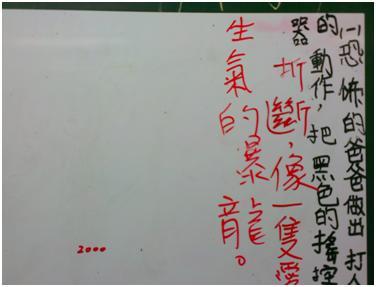 (一)恐怖的爸爸做出打人
的動作，把黑色的搖控
器折斷，像一隻愛
生氣的暴龍。
2000